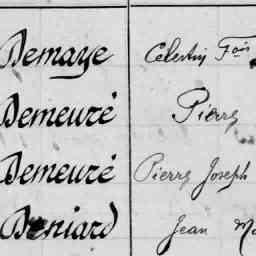 Demaye Celestin Fois
Demeuré Pierre
Demeuré Pierre Joseph
Deniard Jean Ma